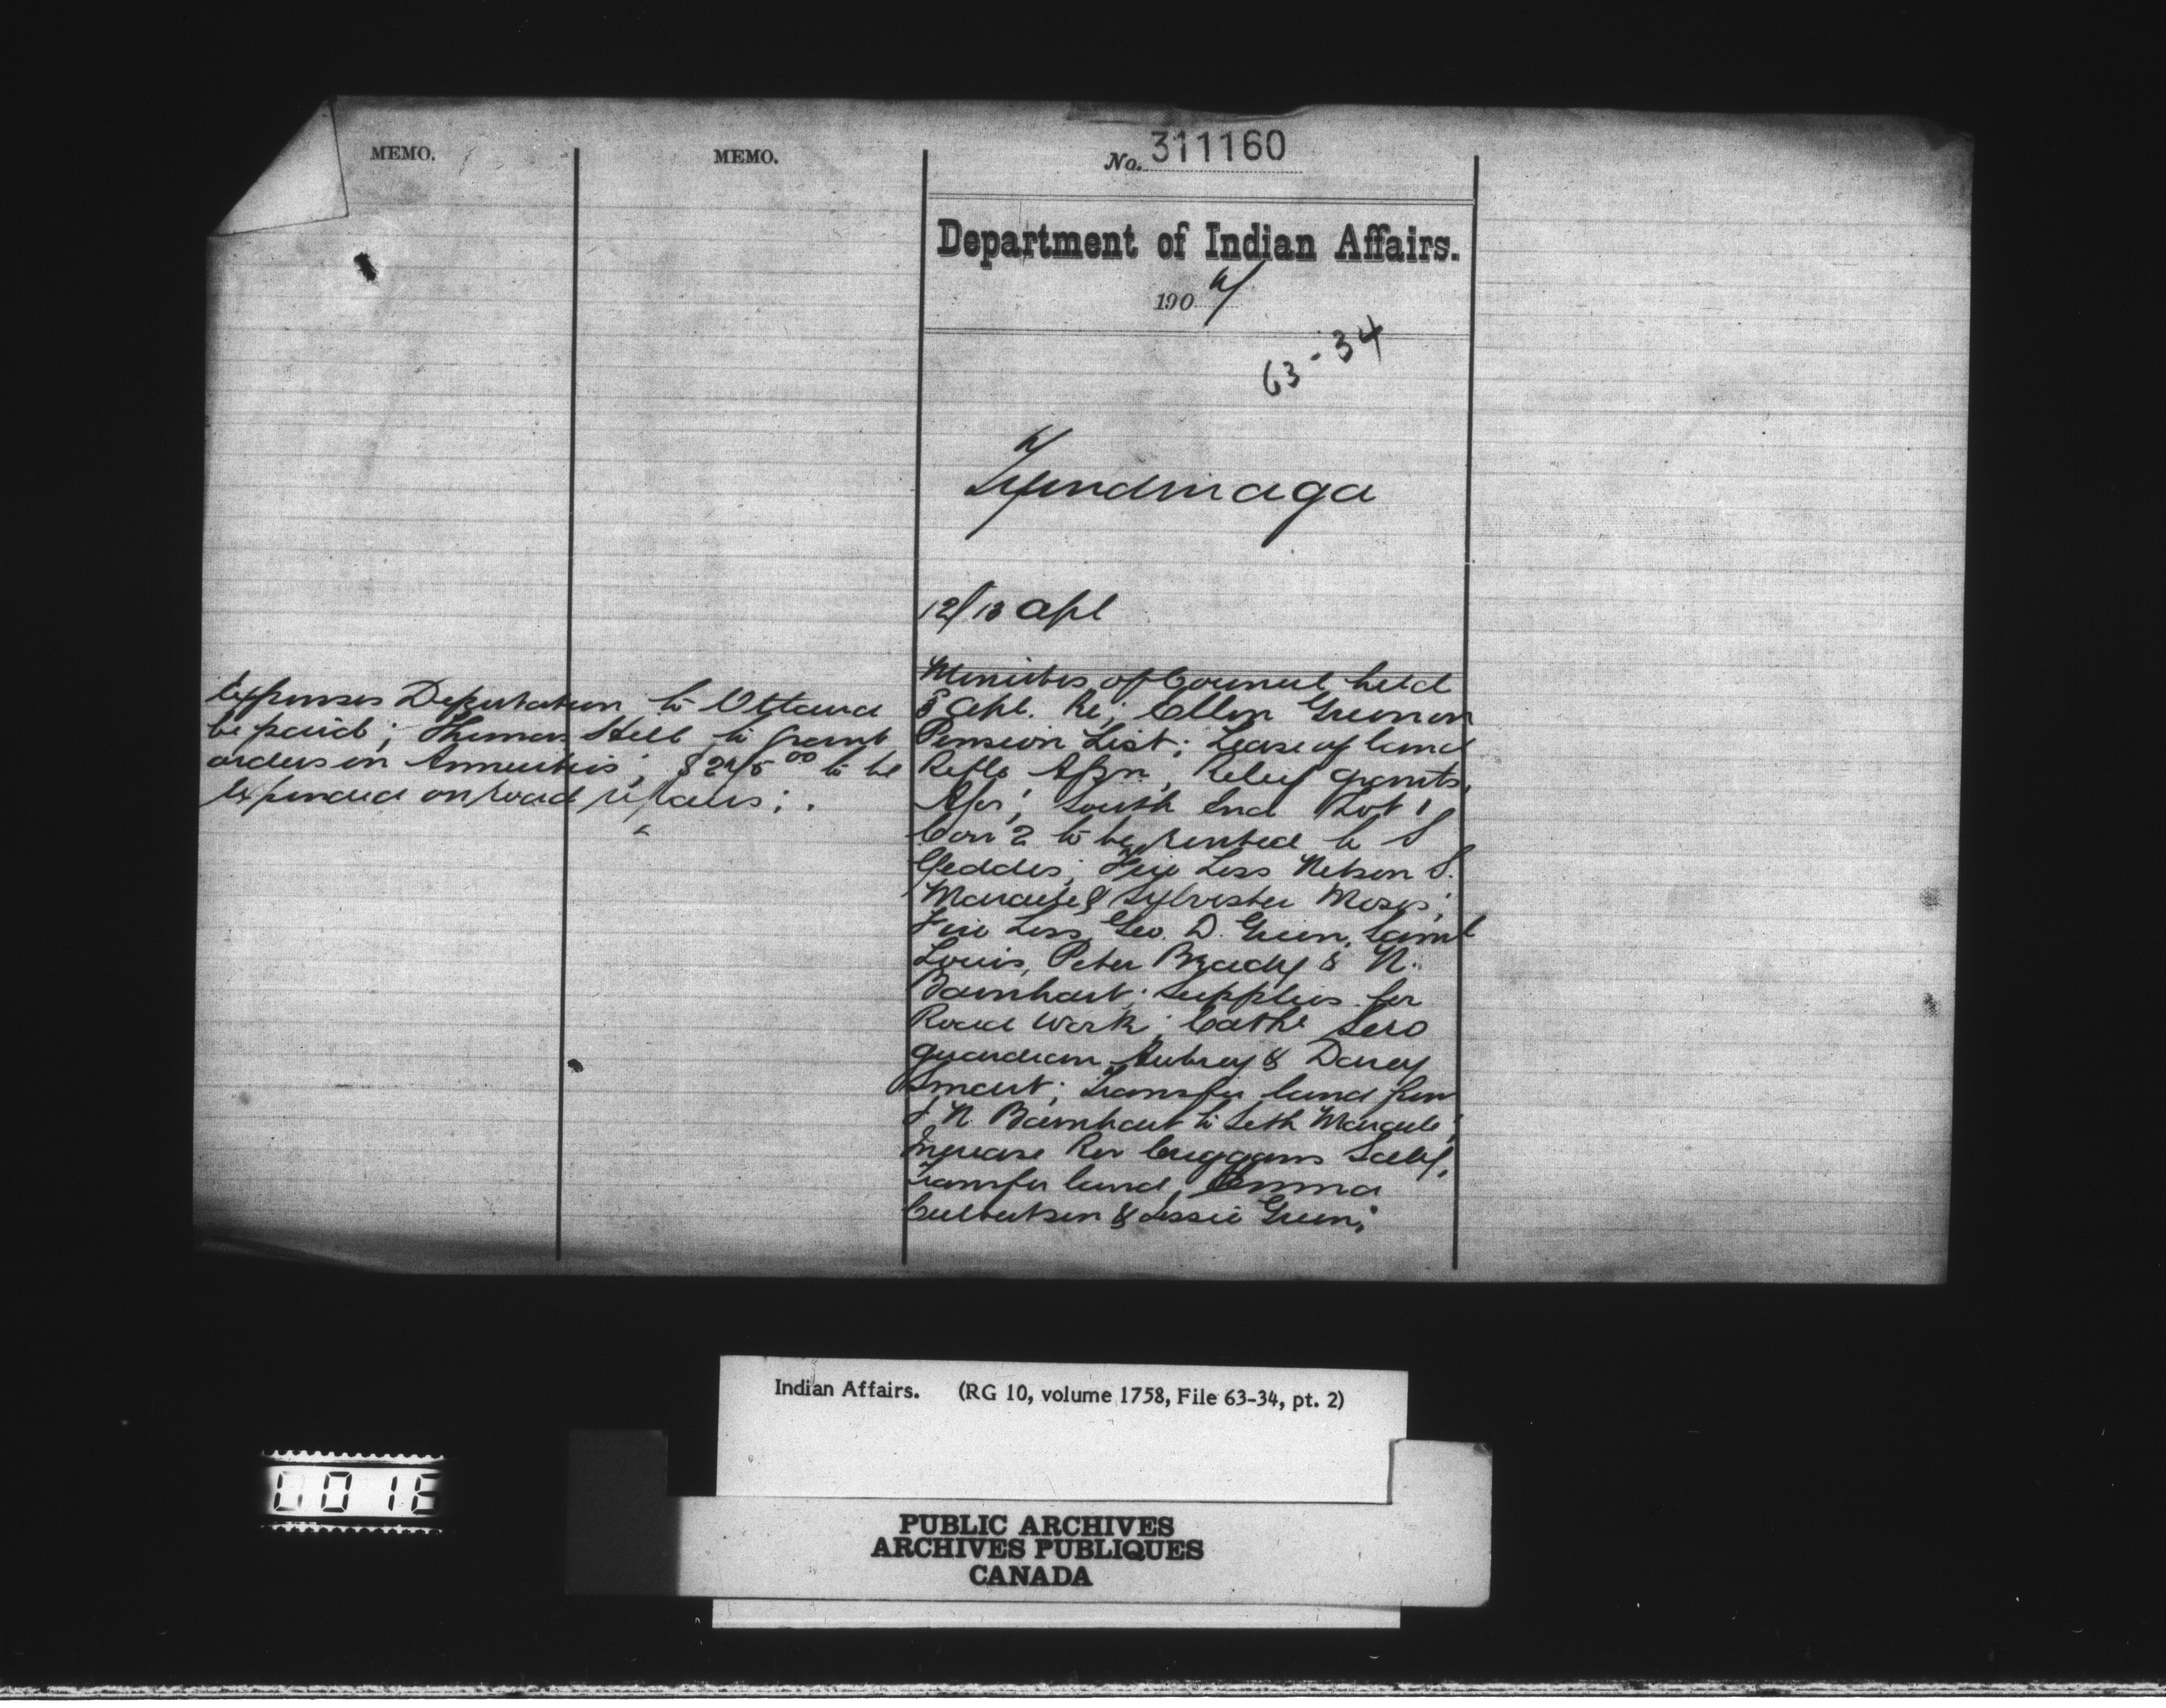 MEMO.
MEMO.
No. 311160
Department of Indian Affairs.
190
63-34
Tyendinaga
12/13 Apl
Minutes of Council held
Apl. Re; Ellen Green on
Pension List; Lease of land
Rifle Assn; Relief grants,
South End Lot 1
Con 2 to be rented to S
Geddes; Fire Loss Nelson S.
Maracle & Sylvester Moses;
Fire Loss Geo. D. Green, Saml
Louis, Peter Brady & N.
Barnhart; Supplies for
Road Work; Cathe Sero
guardian Aubrey & Darcy
Smart; Transfer land from
J N Barnhart to Seth Maracle;
Increase Rev Creggans Saly,
Transfer land, Emma
Culbertson & Jessie Green;
Expenses Deputation to Ottawa
be paid; Thomas Hill to grant
orders on Annuities; to be
expended on road repairs;
Indian Affairs. (RG 10, volume 1758, File 63-34, pt. 2)
PUBLIC ARCHIVES
ARCHIVES PUBLIQUES
CANADA